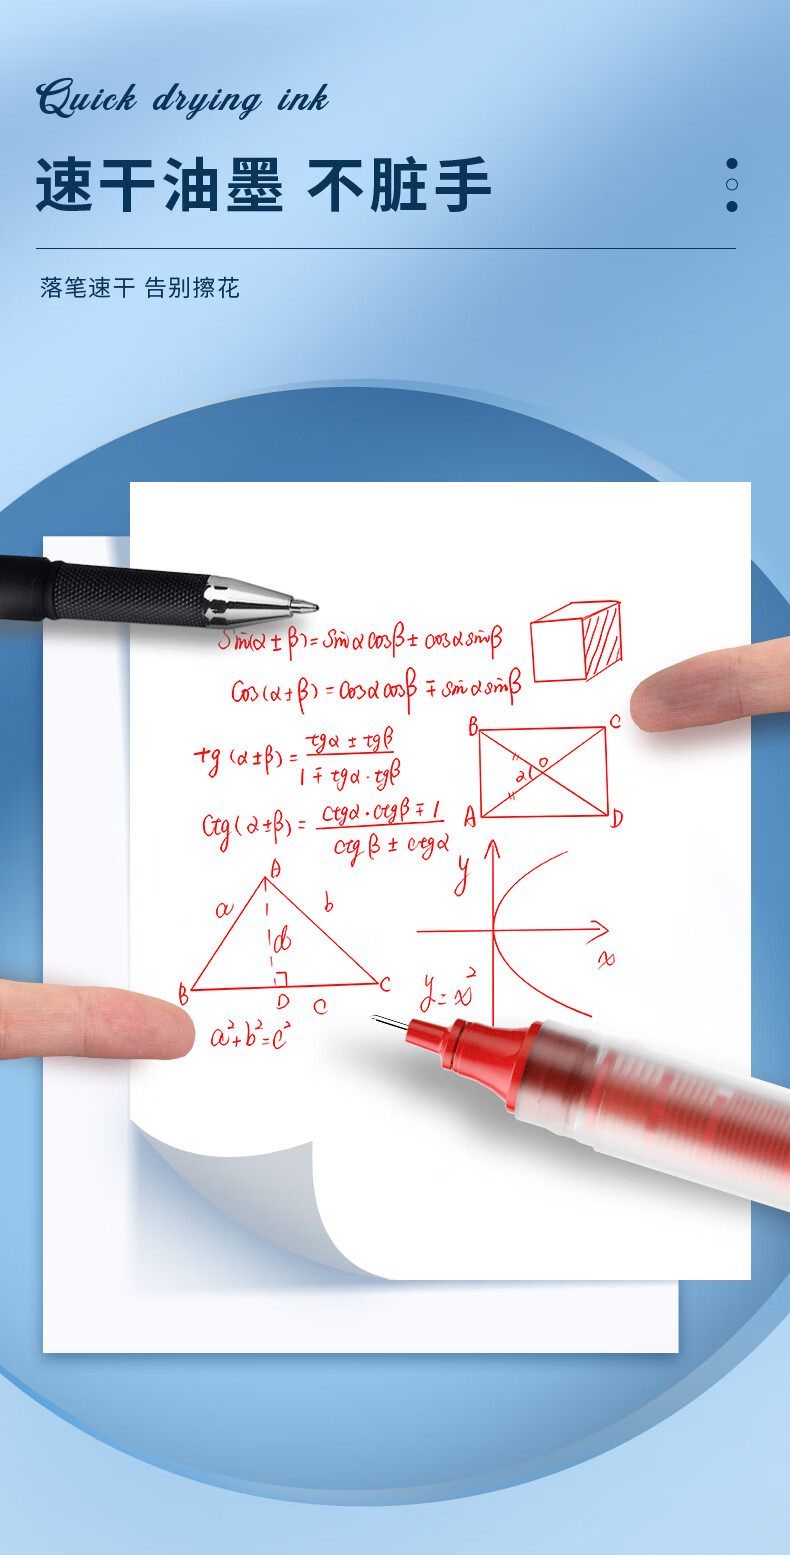 Quick drying ink
速干油墨 不脏手
落笔速干 告别擦花
Sin(α±β)=Sinαcosβ±cosαsinβ
Cos(α±β)=Cosαcosβ∓sinαsinβ
tg(α±β)=tgα±tgβ/1∓tgα·tgβ
Ctg(α±β)=Ctgα·ctgβ∓1/ctgβ±ctgα
B C
2 O
A D
A
a b
d
B D C
C
a²+b²=c²
y
x
y=x²